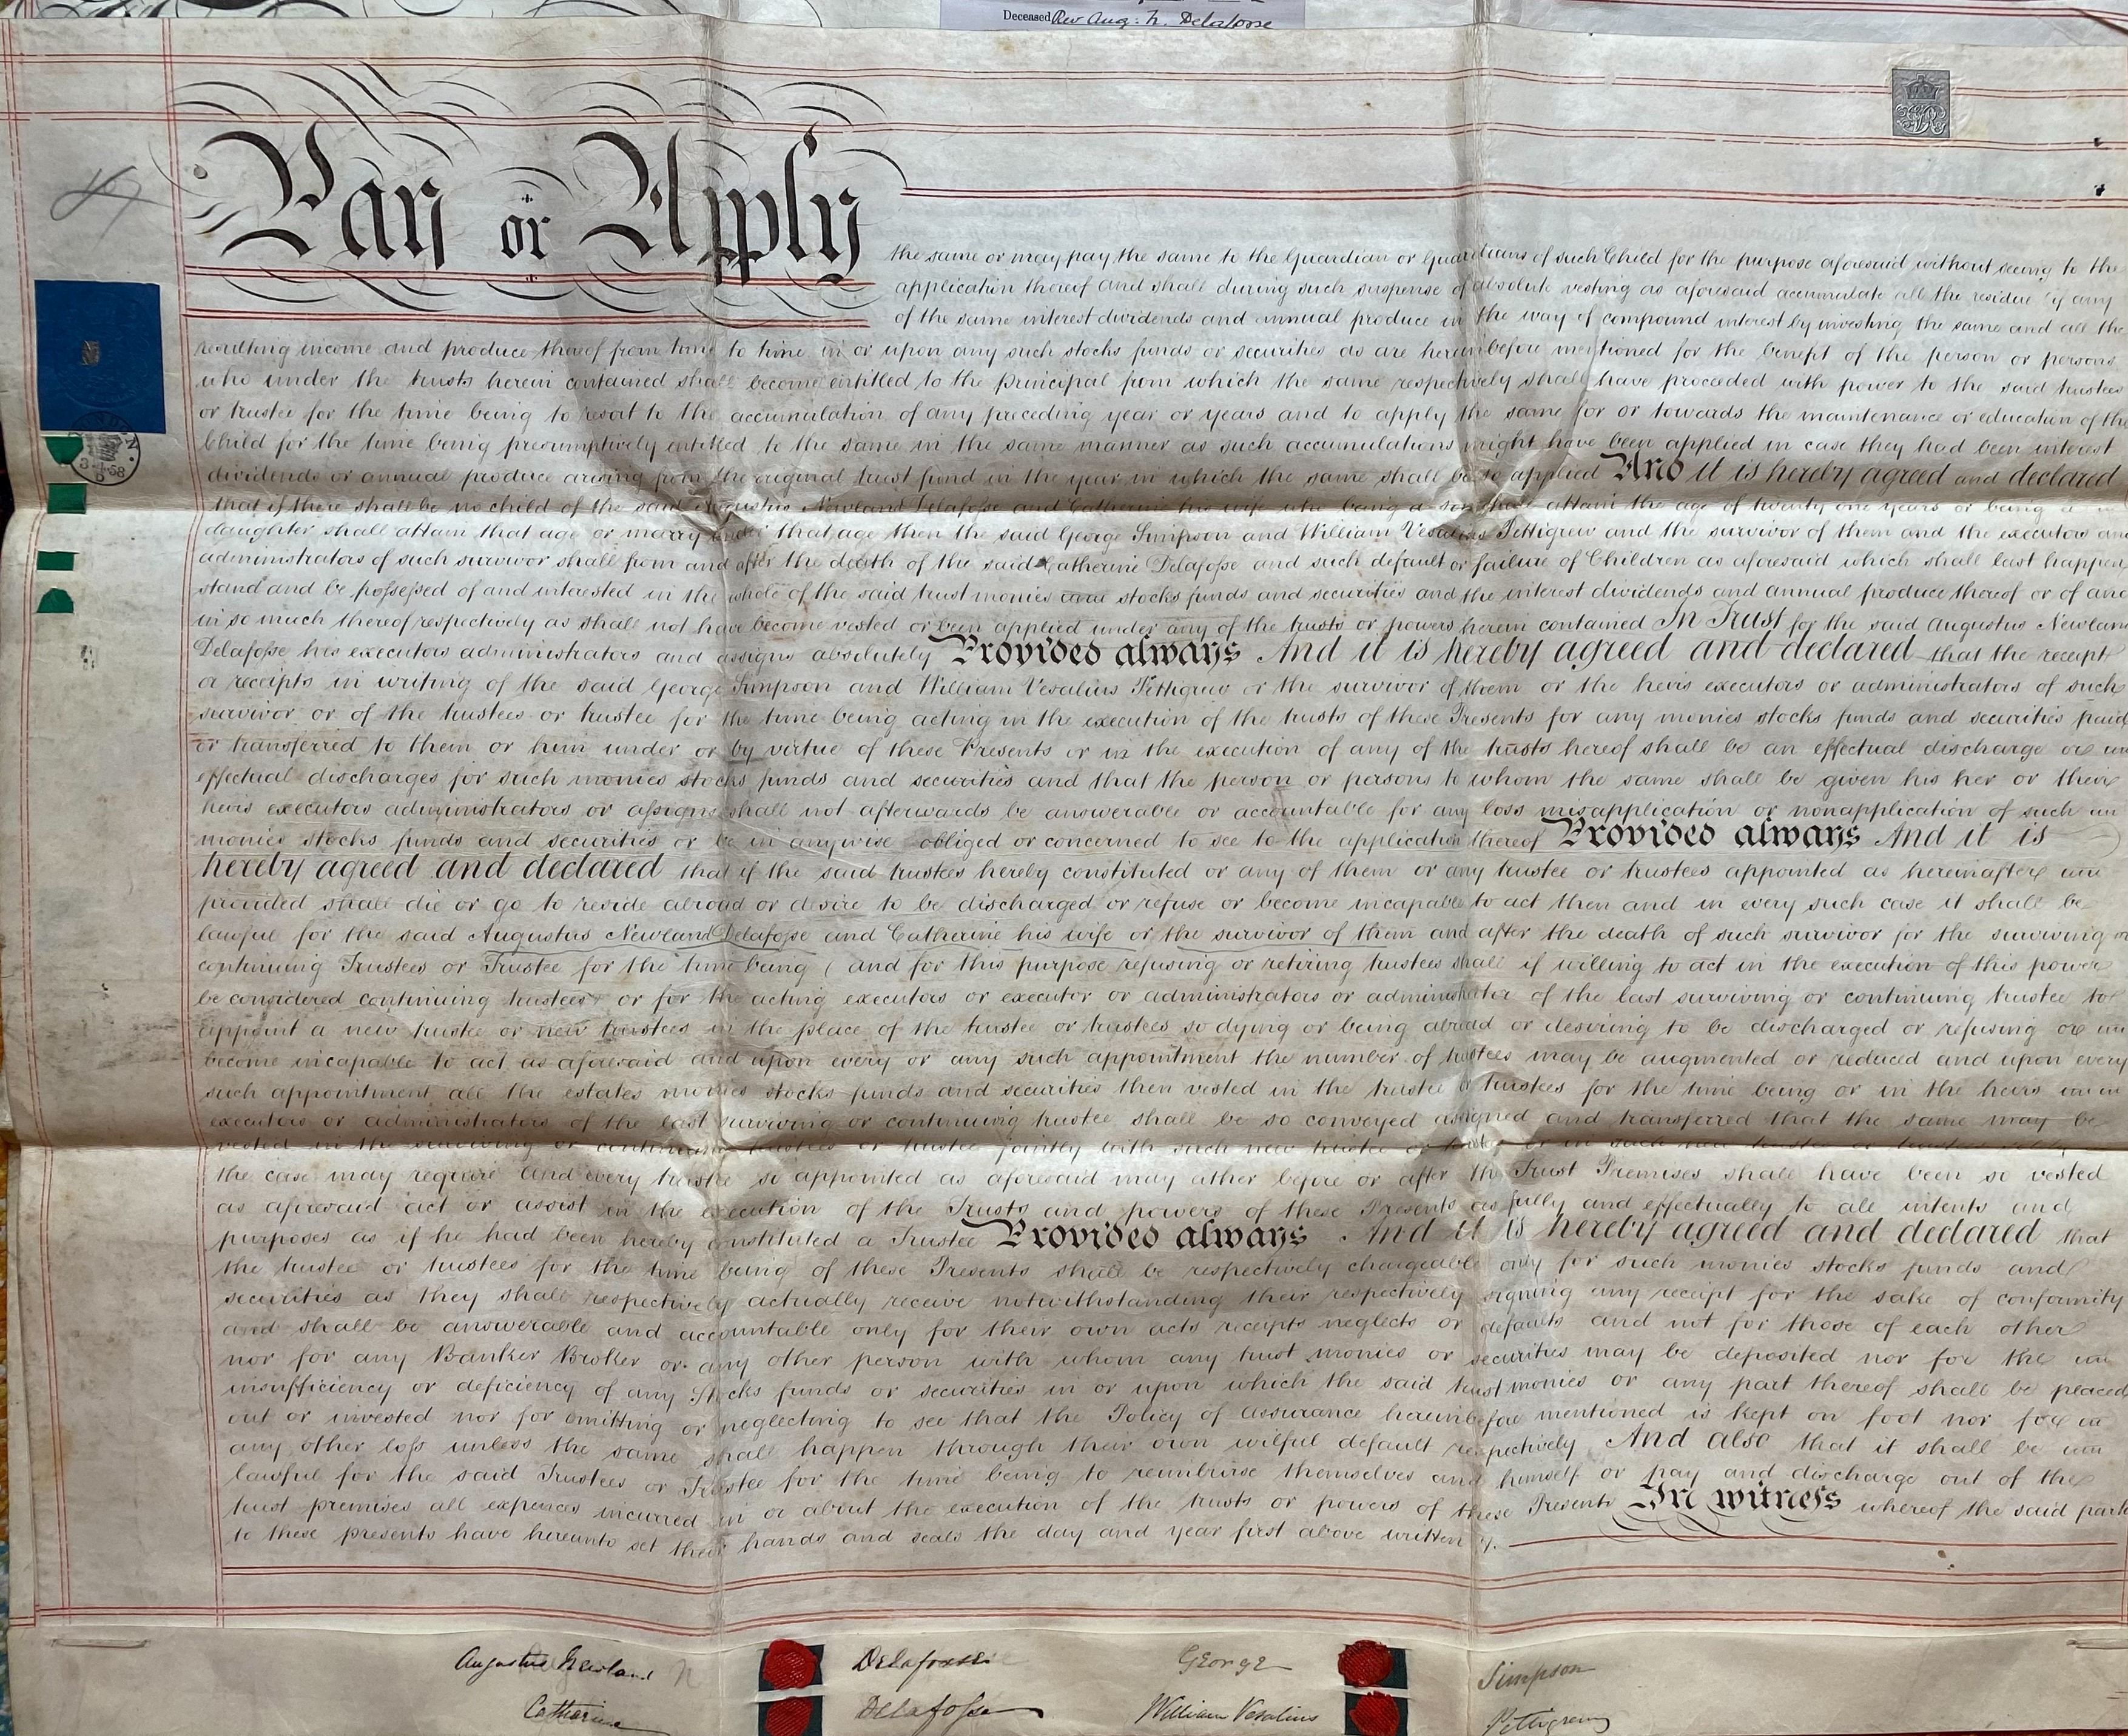 Deceased Rev Aug: N. Delafosse
VR
Pay or Apply
the same or may pay the same to the Guardian or Guardians of such Child for the purpose aforesaid without seeing to the
application thereof and shall during such suspense of absolute vesting as aforesaid accumulate all the residue if any
of the same interest dividends and annual produce in the way of compound interest by investing the same and all the
resulting income and produce thereof from time to time in or upon any such stocks funds or securities as are hereinbefore mentioned for the benefit of the person or persons
who under the trusts herein contained shall become entitled to the principal from which the same respectively shall have proceeded with power to the said trustees
or trustee for the time being to resort to the accumulation of any preceding year or years and to apply the same for or towards the maintenance or education of the
Child for the time being presumptively entitled to the same in the same manner as such accumulations might have been applied in case they had been interest
dividends or annual produce arising from the original trust fund in the year in which the same shall be so applied And it is hereby agreed and declared
that if there shall be no child of the said Augustus Newland Delafosse and Catherine his wife who being a son shall attain the age of twenty one years or being a
daughter shall attain that age or marry under that age then the said George Simpson and William Vesalius Pettigrew and the survivor of them and the executors and
administrators of such survivor shall from and after the death of the said Catherine Delafosse and such default or failure of Children as aforesaid which shall last happen
stand and be possessed of and interested in the whole of the said trust monies stocks funds and securities and the interest dividends and annual produce thereof or of and
in so much thereof respectively as shall not have become vested or been applied under any of the trusts or powers herein contained In Trust for the said Augustus Newland
Delafosse his executors administrators and assigns absolutely Provided always And it is hereby agreed and declared that the receipt
or receipts in writing of the said George Simpson and William Vesalius Pettigrew or the survivor of them or the heirs executors or administrators of such
survivor or of the trustees or trustee for the time being acting in the execution of the trusts of these Presents for any monies stocks funds and securities paid
or transferred to them or him under or by virtue of these Presents or in the execution of any of the trusts hereof shall be an effectual discharge or
effectual discharges for such monies stocks funds and securities and that the person or persons to whom the same shall be given his her or their
heirs executors administrators or assigns shall not afterwards be answerable or accountable for any loss misapplication or nonapplication of such
monies stocks funds and securities or be in anywise obliged or concerned to see to the application thereof Provided always And it is
hereby agreed and declared that if the said trustees hereby constituted or any of them or any trustee or trustees appointed as hereinafter
provided shall die or go to reside abroad or desire to be discharged or refuse or become incapable to act then and in every such case it shall be
lawful for the said Augustus Newland Delafosse and Catherine his wife or the survivor of them and after the death of such survivor for the surviving or
continuing Trustees or Trustee for the time being ( and for this purpose refusing or retiring trustees shall if willing to act in the execution of this power
be considered continuing trustees or for the acting executors or executor or administrators or administrator of the last surviving or continuing trustee to
appoint a new trustee or new trustees in the place of the trustee or trustees so dying or being abroad or desiring to be discharged or refusing or
become incapable to act as aforesaid and upon every or any such appointment the number of trustees may be augmented or reduced and upon every
such appointment all the estates monies stocks funds and securities then vested in the trustee or trustees for the time being or in the heirs
executors or administrators of the last surviving or continuing trustee shall be so conveyed assigned and transferred that the same may be
vested in the surviving or continuing trustees or trustee jointly with such new trustee or trustees or in such new trustee or trustees solely
the case may require and every trustee so appointed as aforesaid may either before or after the Trust Premises shall have been so vested
as aforesaid act or assist in the execution of the Trusts and powers of these Presents as fully and effectually to all intents and
purposes as if he had been hereby constituted a Trustee Provided always And it is hereby agreed and declared that
the trustee or trustees for the time being of these Presents shall be respectively chargeable only for such monies stocks funds and
securities as they shall respectively actually receive notwithstanding their respectively signing any receipt for the sake of conformity
and shall be answerable and accountable only for their own acts receipts neglects or defaults and not for those of each other
nor for any Banker Broker or any other person with whom any trust monies or securities may be deposited nor for the
insufficiency or deficiency of any Stocks funds or securities in or upon which the said trust monies or any part thereof shall be placed
out or invested nor for omitting or neglecting to see that the Policy of assurance hereinbefore mentioned is kept on foot nor for
any other loss unless the same shall happen through their own wilful default respectively And also that it shall be
lawful for the said Trustees or Trustee for the time being to reimburse themselves and himself or pay and discharge out of the
trust premises all expences incurred in or about the execution of the trusts or powers of these Presents In witness whereof the said
to these presents have hereunto set their hands and seals the day and year first above written
Augustus Newland Delafosse George Simpson
Catherine Delafosse William Vesalius Pettigrew